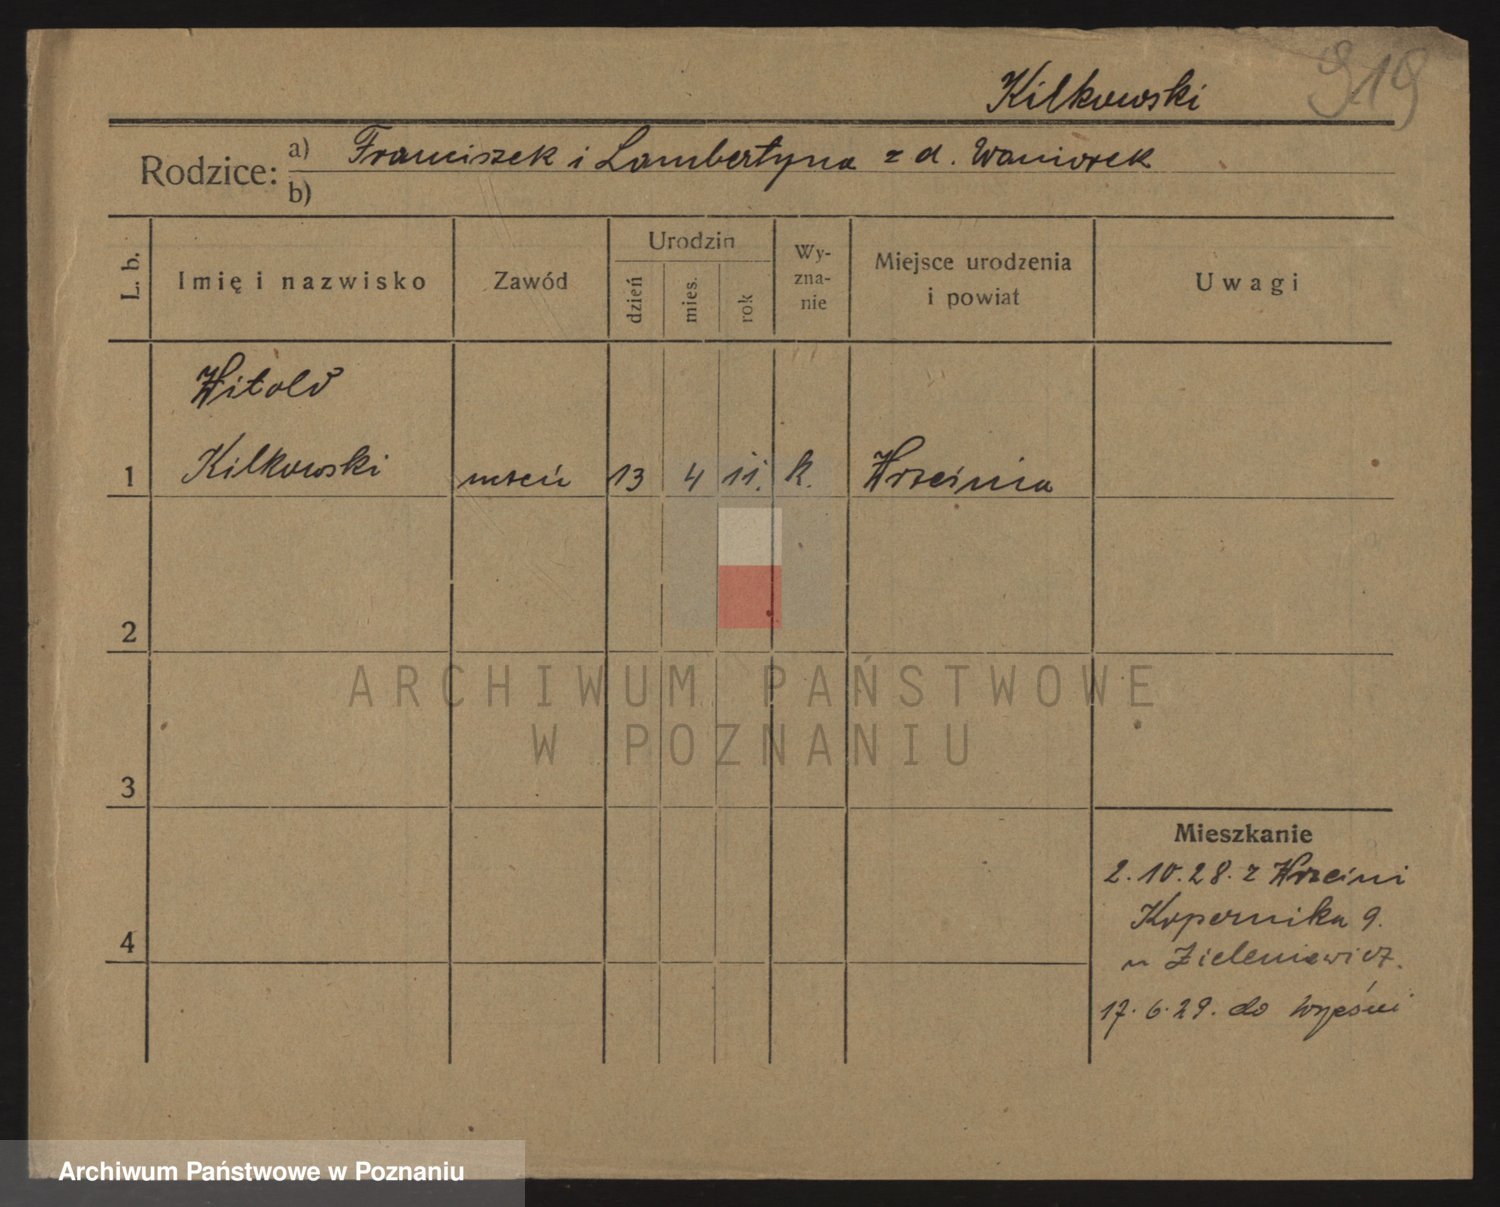 Kilkowski
919
Rodzice: a) Franciszek i Lambertyna z d. Waniorek
b)
L. b. Imię i nazwisko Zawód Urodzin dzień mies. rok Wyznanie Miejsce urodzenia i powiat Uwagi
Witold
1 Kilkowski uczeń 13 4 11. k. Września
2
3
4
Mieszkanie
2.10.28. z Wrześni
Kopernika 9.
u Zieleniewicz.
17.6.29. do Wrześni
ARCHIWUM PAŃSTWOWE
W POZNANIU
Archiwum Państwowe w Poznaniu